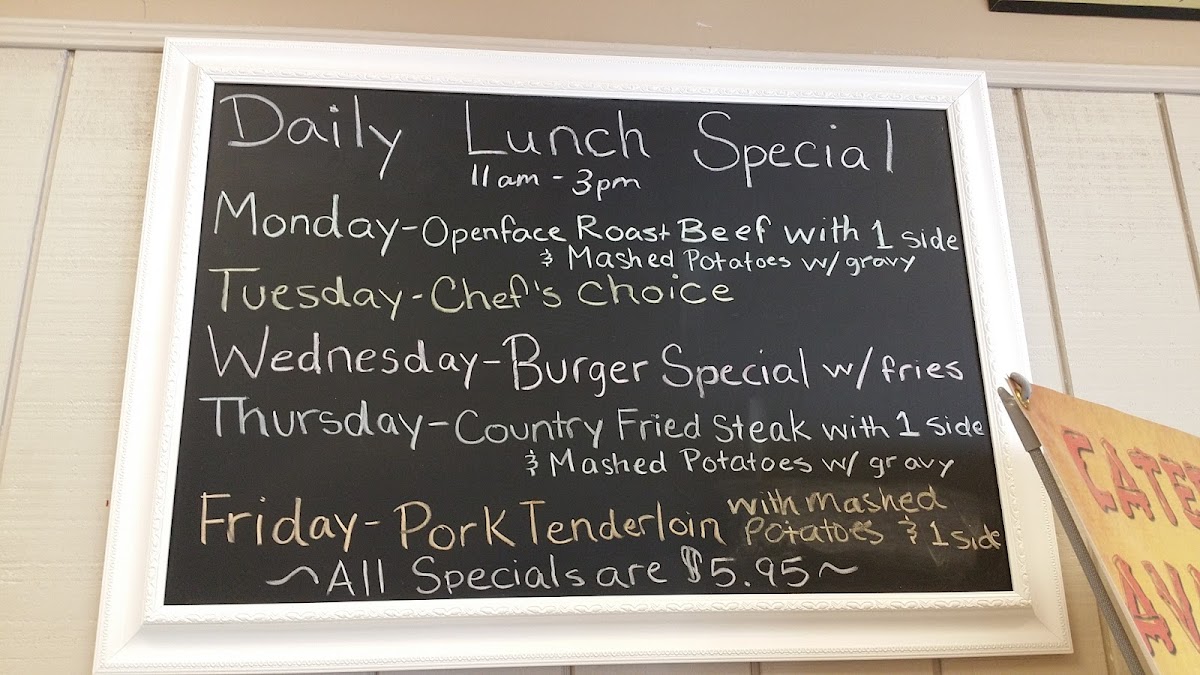 Daily Lunch Special
11am - 3pm
Monday - Openface Roast Beef with 1 side
& Mashed Potatoes w/ gravy
Tuesday - Chef's Choice
Wednesday - Burger Special w/ fries
Thursday - Country Fried Steak with 1 side
& Mashed Potatoes w/ gravy
Friday - Pork Tenderloin with mashed
Potatoes & 1 side
~All Specials are $5.95~